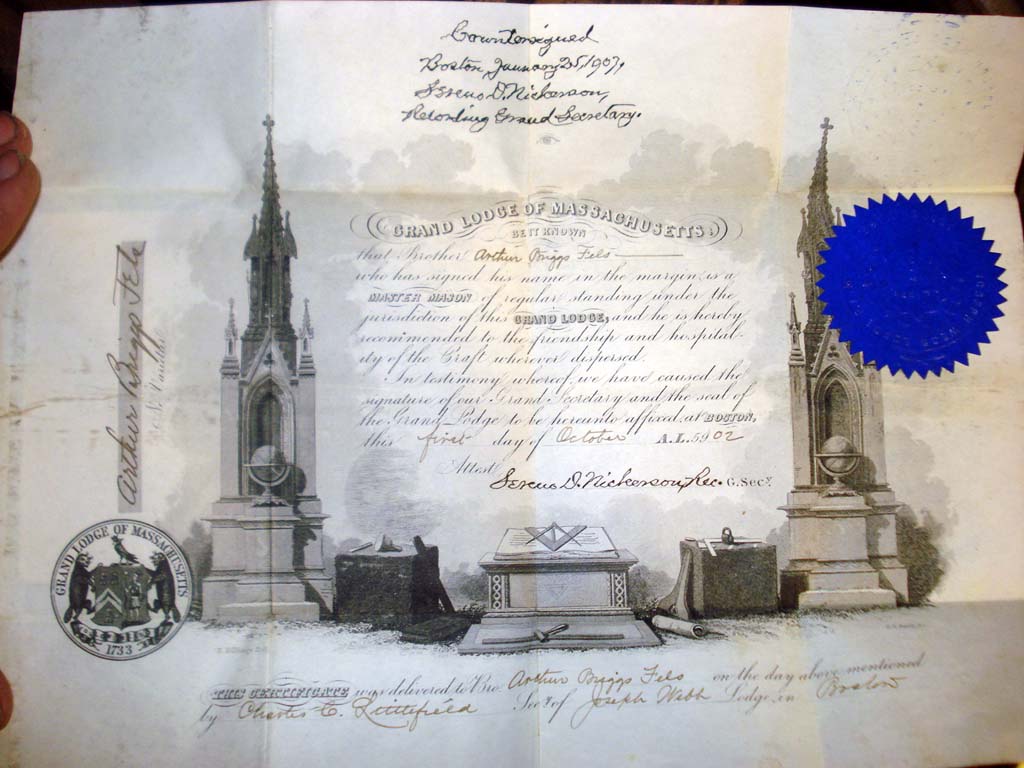 Countersigned
Boston, January 25, 1907,
Sereno D. Nickerson,
Recording Grand Secretary.
GRAND LODGE OF MASSACHUSETTS.
BE IT KNOWN
that Brother Arthur Briggs Fels
who has signed his name in the margin, is a
MASTER MASON of regular standing under the
jurisdiction of this GRAND LODGE, and he is hereby
recommended to the friendship and hospital-
ity of the Craft wherever dispersed.
In testimony whereof, we have caused the
signature of our Grand Secretary and the seal of
the Grand Lodge to be hereunto affixed, at BOSTON,
this first day of October A.L. 5902
Attest
Sereno D. Nickerson, Rec. G. Secy.
Arthur Briggs Fels
GRAND LODGE OF MASSACHUSETTS
1733
THIS CERTIFICATE was delivered to Bro. Arthur Briggs Fels on the day above mentioned
by Charles E. Littlefield Secy of Joseph Webb Lodge, in Boston